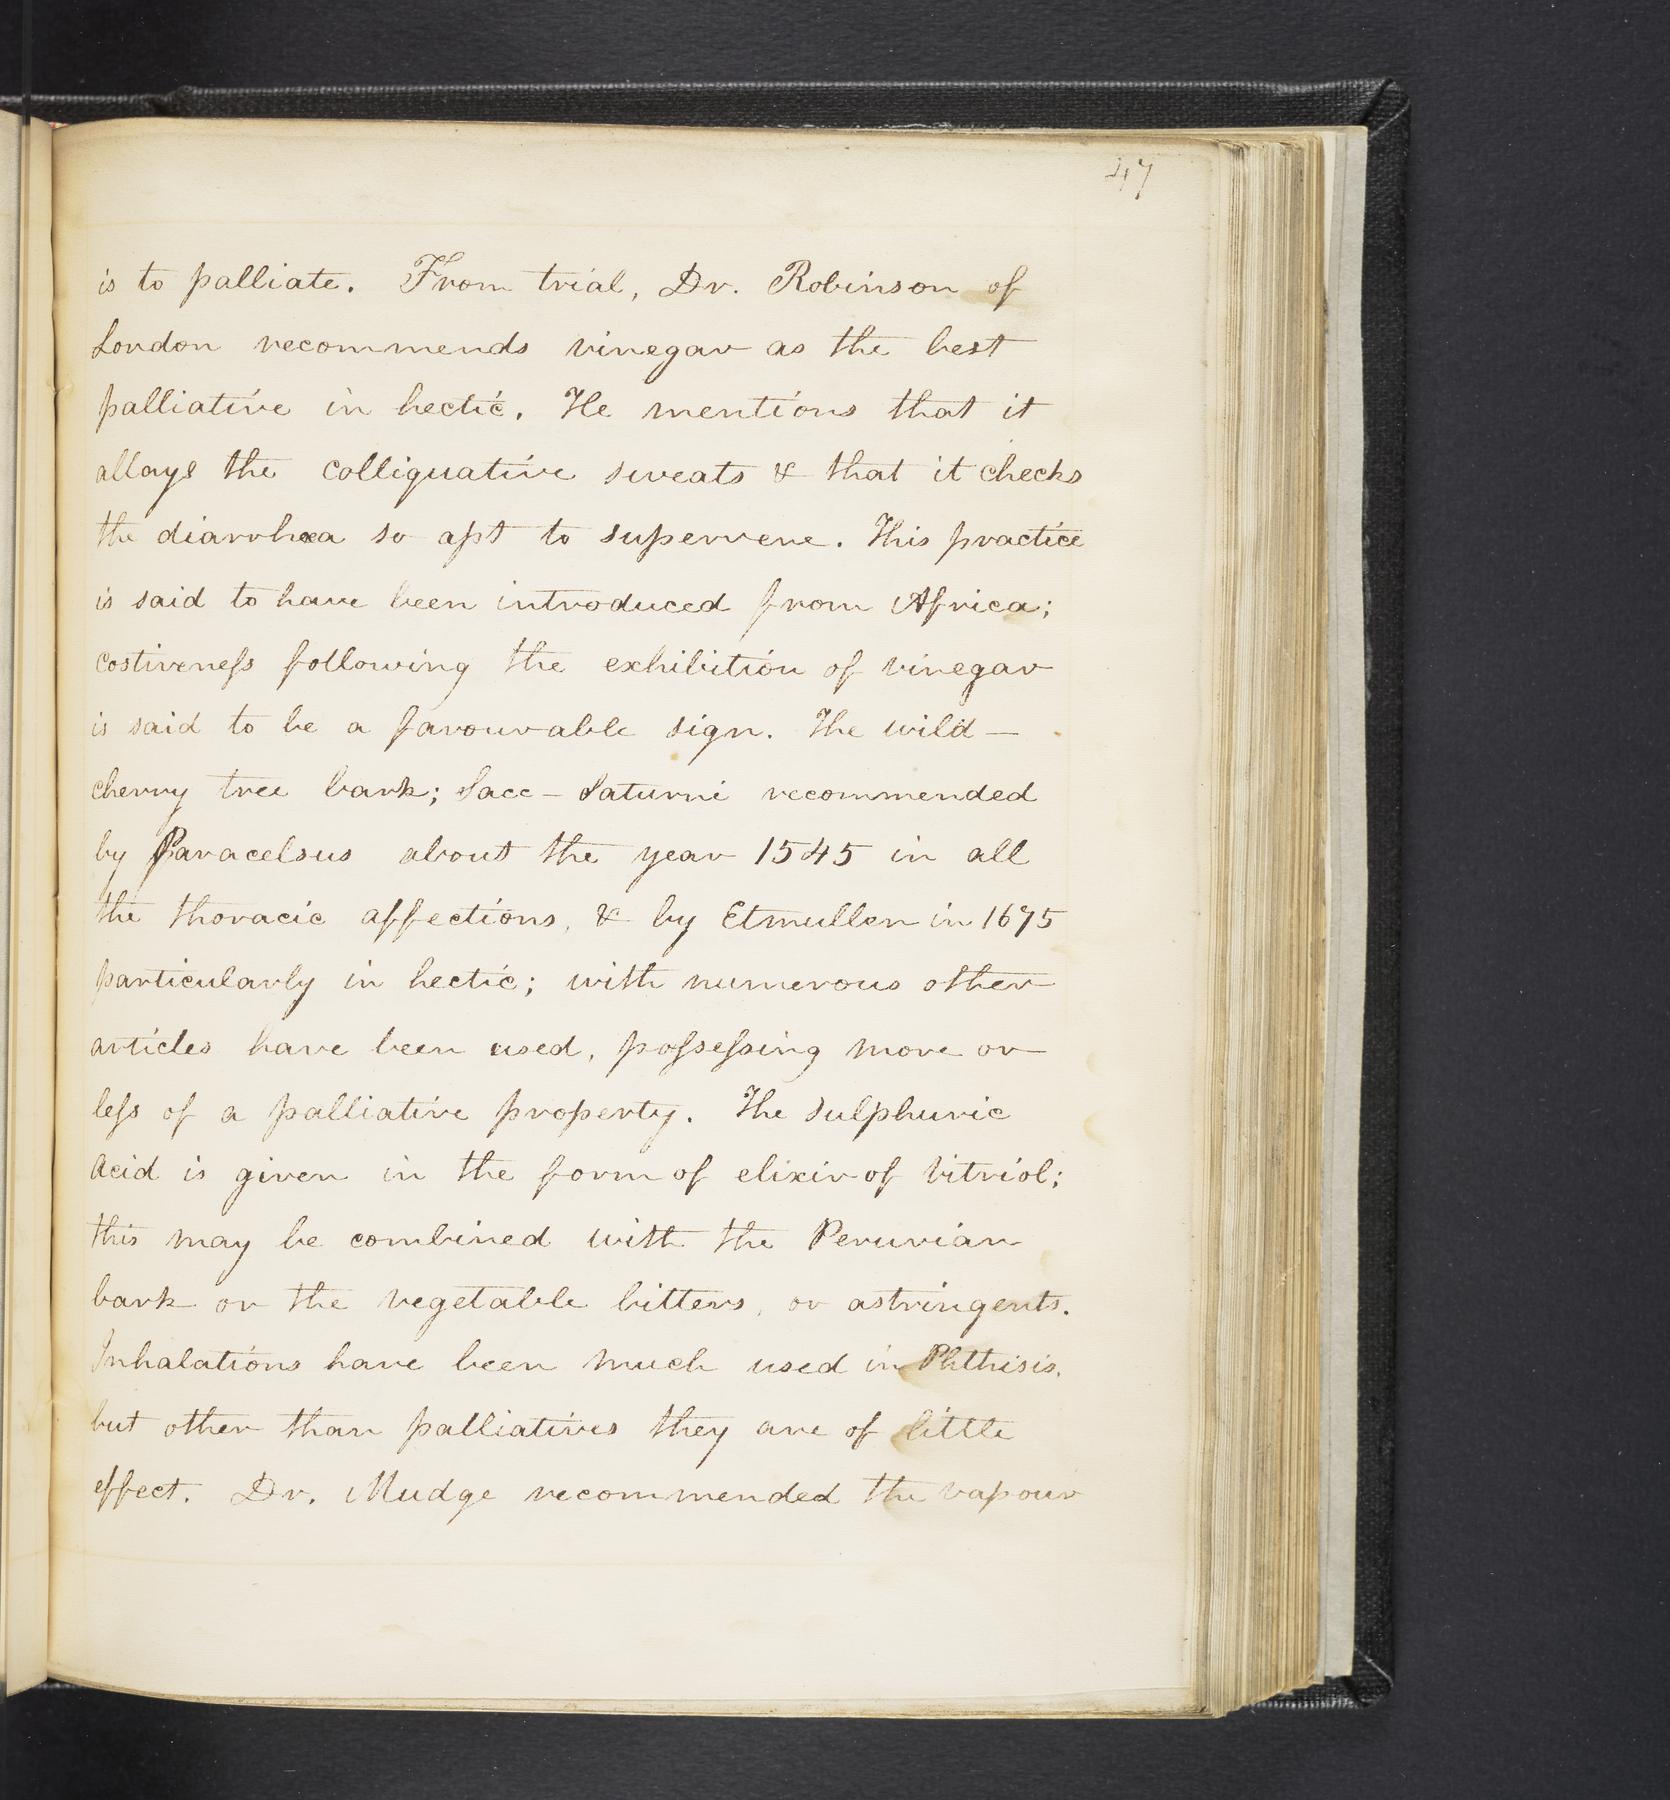 47
is to palliate. From trial, Dr. Robinson of
London recommends vinegar as the best
palliative in hectic. He mentions that it
allays the colliquative sweats & that it checks
the diarrhœa so apt to supervene. This practice
is said to have been introduced from Africa;
costiveneſs following the exhibition of vinegar
is said to be a favourable sign. The wild –
cherry tree bark; Sacc – Saturni recommended
by Paracelsus about the year 1545 in all
the thoracic affections, & by Etmuller in 1675
particularly in hectic; with numerous other
articles have been used, poſseſsing more or
leſs of a palliative property. The Sulphuric
Acid is given in the form of elixir of vitriol;
this may be combined with the Peruvian
bark or the vegetable bitters, or astringents.
Inhalations have been much used in Phthisis.
but other than palliatives they are of little
effect. Dr. Mudge recommended the vapour